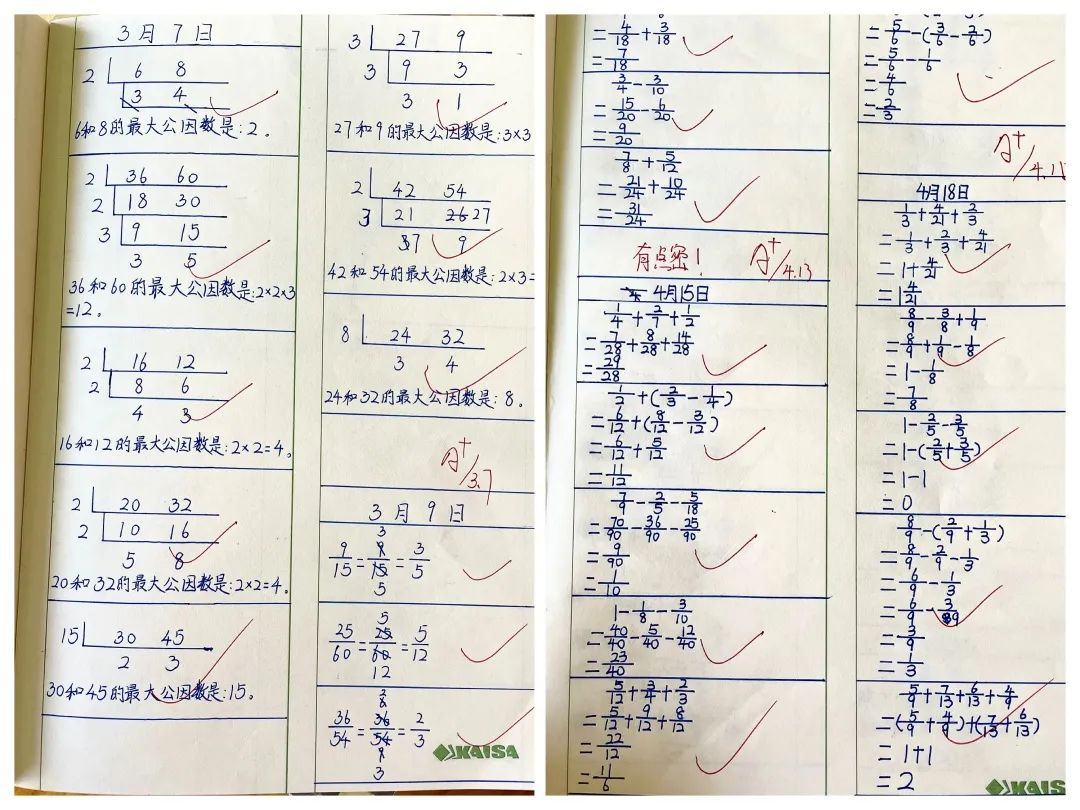 3月7日
2 6 8
3 4
6和8的最大公因数是:2。
2 36 60
2 18 30
3 9 15
3 5
36和60的最大公因数是:2×2×3
=12。
2 16 12
2 8 6
4 3
16和12的最大公因数是:2×2=4。
2 20 32
2 10 16
5 8
20和32的最大公因数是:2×2=4。
15 30 45
2 3
30和45的最大公因数是:15。
3 27 9
3 9 3
3 1
27和9的最大公因数是:3×3
2 42 54
3 21 27
7 9
42和54的最大公因数是:2×3=
8 24 32
3 4
24和32的最大公因数是:8。
A+/3.7
3月9日
3
9/15=9/15=3/5
5
5
25/60=25/60=5/12
12
2
36/54=36/54=2/3
3
KAISA
=4/18+3/18
=7/18
3/4-3/10
=15/20-6/20
=9/20
7/8+5/12
=21/24+10/24
=31/24
有点密! A+/4.13
4月15日
1/4+2/7+1/2
=7/28+8/28+14/28
=29/28
1/2+(2/3-1/4)
=6/12+(8/12-3/12)
=6/12+5/12
=11/12
7/9-2/5-5/18
=70/90-36/90-25/90
=9/90
=1/10
1-1/8-3/10
=40/40-5/40-12/40
=23/40
5/12+3/4+2/3
=5/12+9/12+8/12
=22/12
=11/6
=5/6-(3/6-2/6)
=5/6-1/6
=4/6
=2/3
A+
4月18日
1/3+4/21+2/3
=1/3+2/3+4/21
=1+4/21
=1 4/21
8/9-3/8+1/9
=8/9+1/9-1/8
=1-1/8
=7/8
1-2/5-3/5
=1-(2/5+3/5)
=1-1
=0
8/9-(2/9+1/3)
=8/9-2/9-1/3
=6/9-1/3
=6/9-3/9
=3/9
=1/3
5/9+7/13+6/13+4/9
=(5/9+4/9)+(7/13+6/13)
=1+1
=2
KAIS